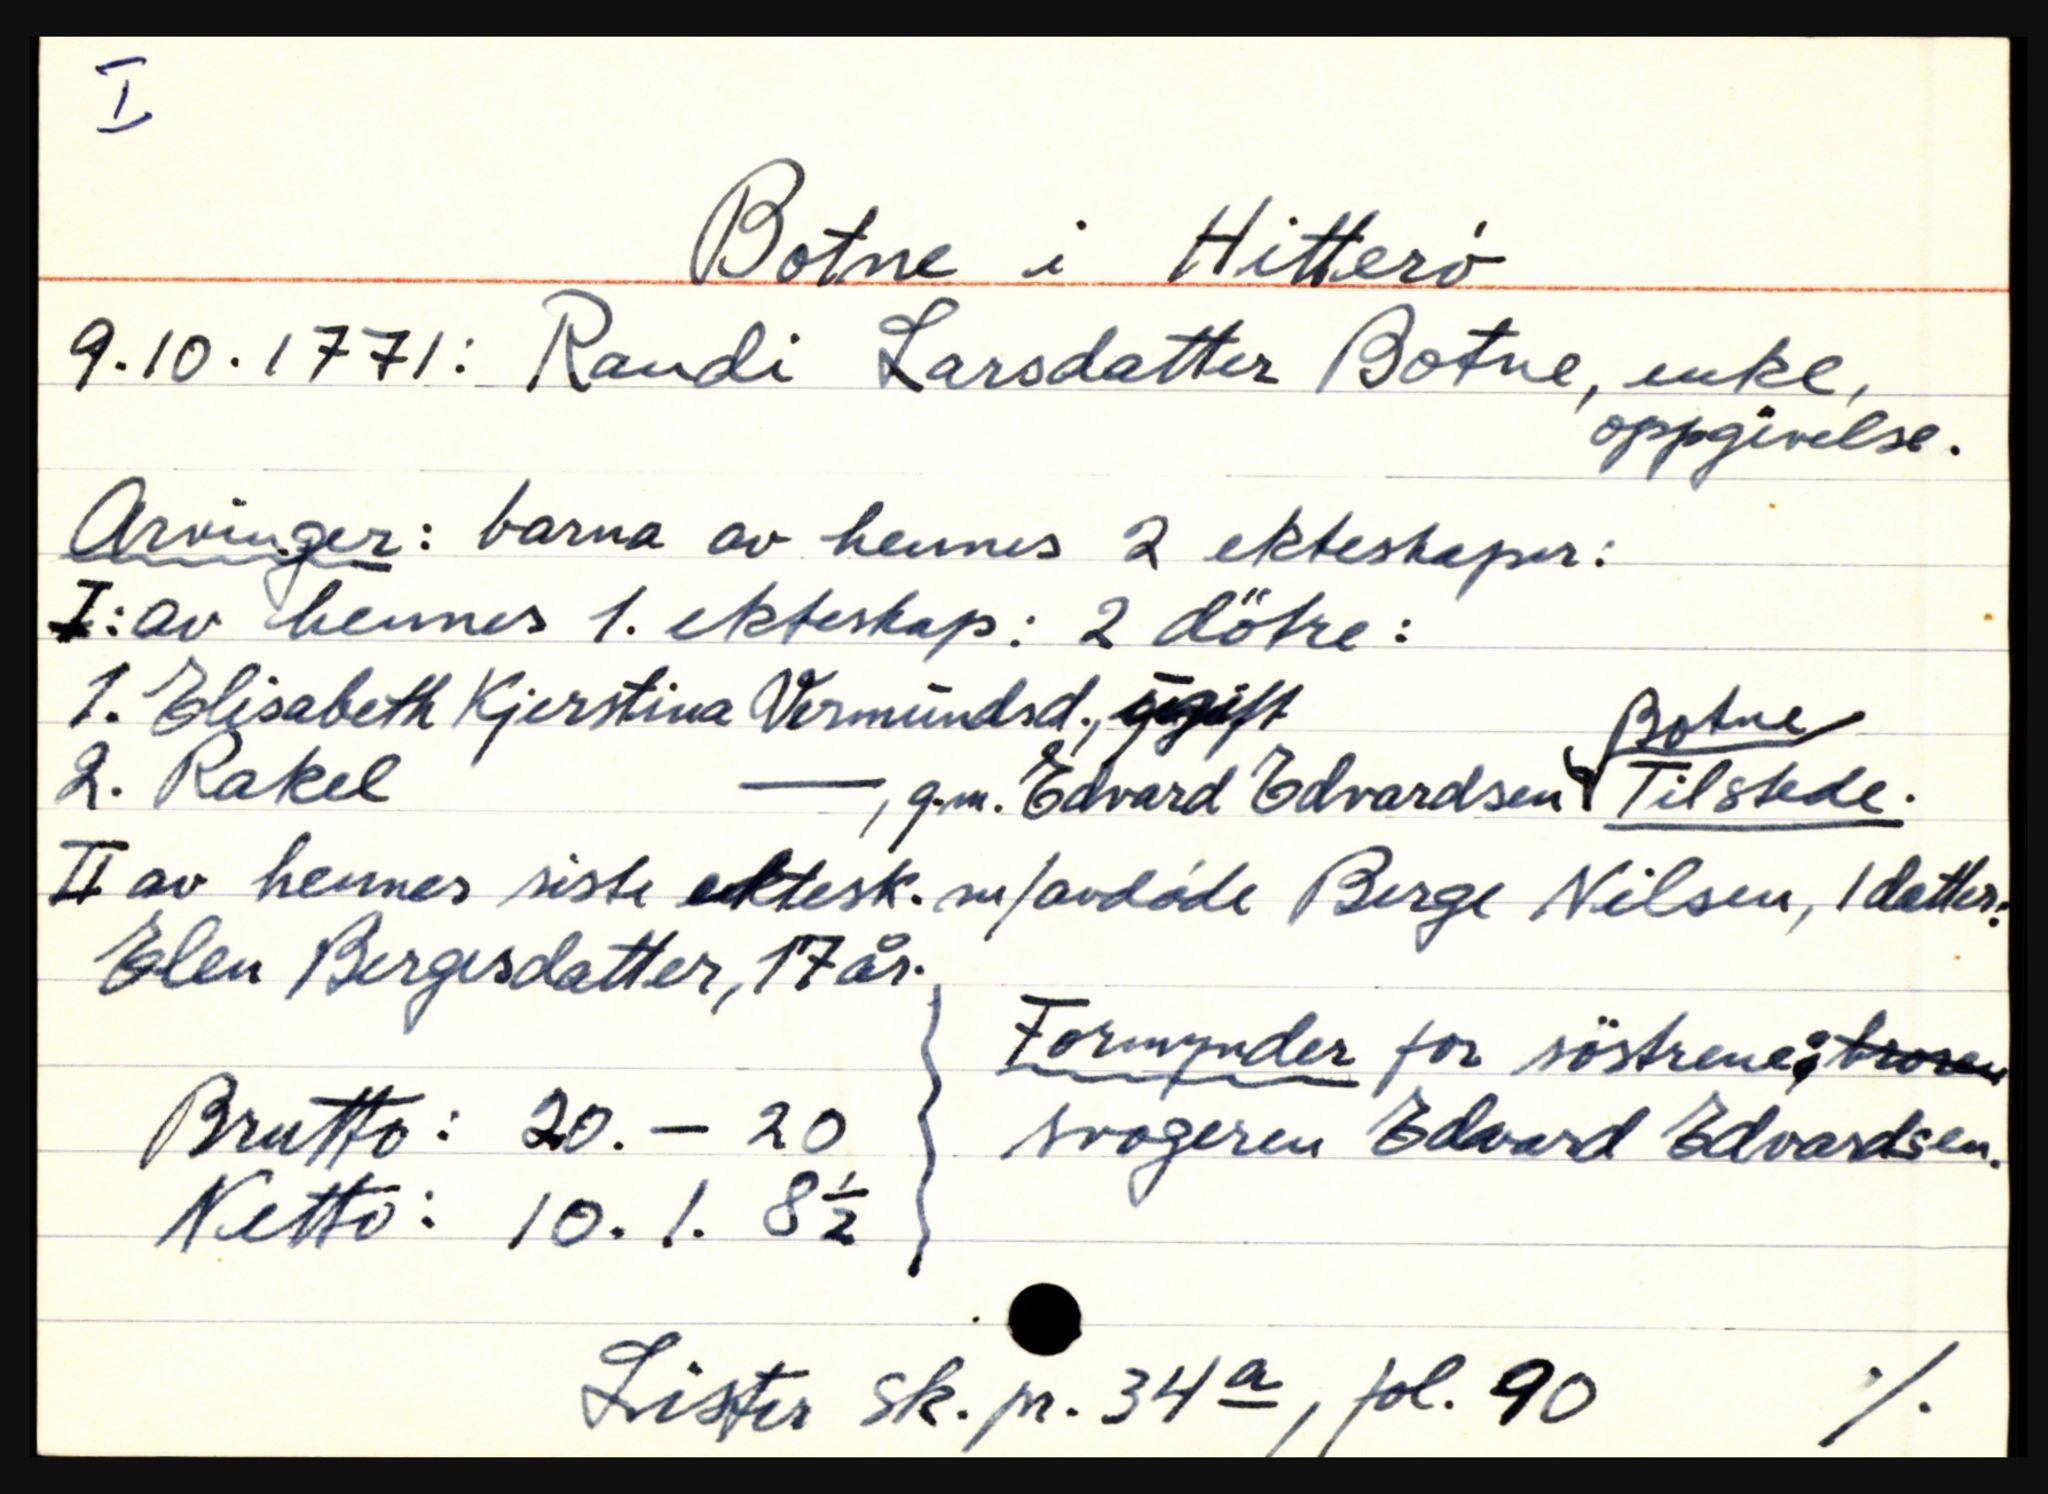 I
Botne i Hitterö
9.10.1771: Randi Larsdatter Botne, enke,
oppgivelse.
Arvinger: barna av hennes 2 ekteskaper:
I: av hennes 1. ekteskap: 2 dötre:
1. Elisabeth Kjerstina Vermundsd., ugift
Botne
2. Rakel —, g.m. Edvard Edvardsen Tilstede.
II av hennes siste ektesk. m/avdöde Berge Nilsen, 1 datter:
Elen Bergesdatter, 17 år.
Formynder for söstrene: broren
Brutto: 20. – 20
svogeren Edvard Edvardsen.
Netto: 10. 1. 8½
Lister sk. pr. 34a, fol. 90 ./.